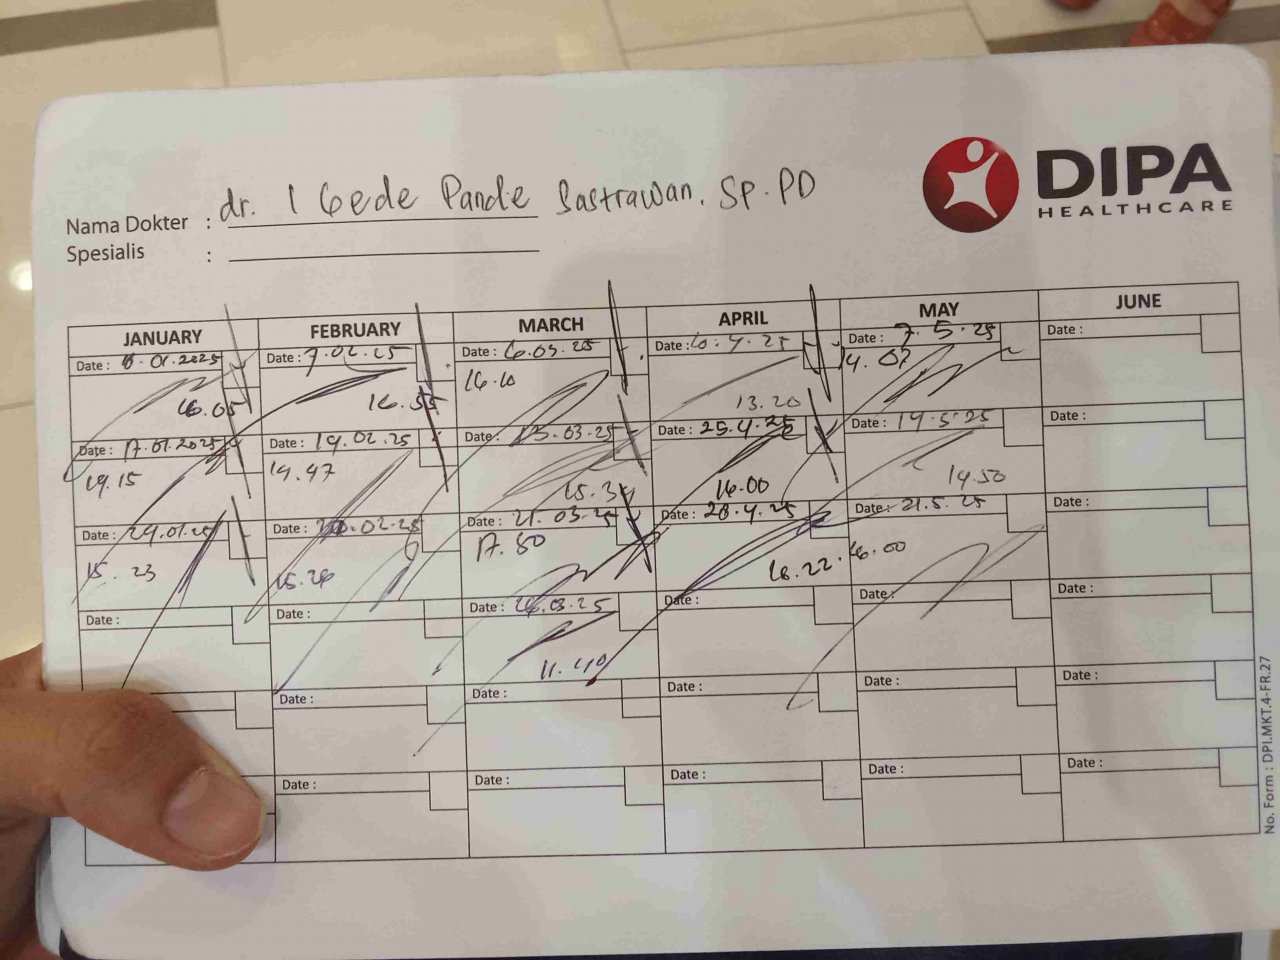 DIPA
HEALTHCARE
Nama Dokter : dr. I Gede Pande Sastrawan. Sp.PD
Spesialis :
JANUARY FEBRUARY MARCH APRIL MAY JUNE
Date : .01.2025 Date : 7.02.25 Date : 6.03.25 Date : .4.25 Date : 7.5.25 Date :
16.05 16.55 16.10 13.20 14.07
Date : 17.01.2025 Date : 19.02.25 Date : 13.03.25 Date : 25.4.25 Date : 19.5.25 Date :
19.15 19.47 15.34 16.00 14.50
Date : 29.01.25 Date : .02.25 Date : 21.03.25 Date : 28.4.25 Date : 21.5.25 Date :
15.23 15.26 17.50 16.22 16.00
Date : Date : Date : 26.03.25 Date : Date : Date :
11.40
Date : Date : Date : Date : Date :
Date : Date : Date : Date : Date :
No. Form : DPI.MKT.4-FR.27